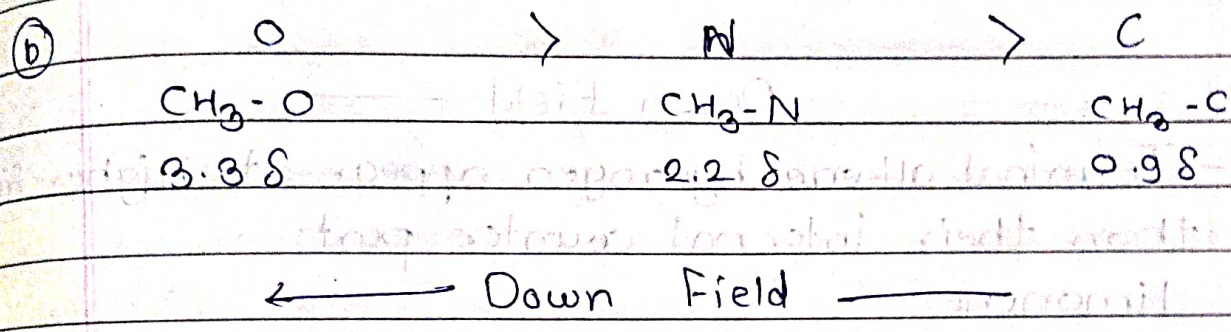 (b) O > N > C
CH3-O CH3-N CH3-C
3.3 δ 2.2 δ 0.9 δ
← Down Field —